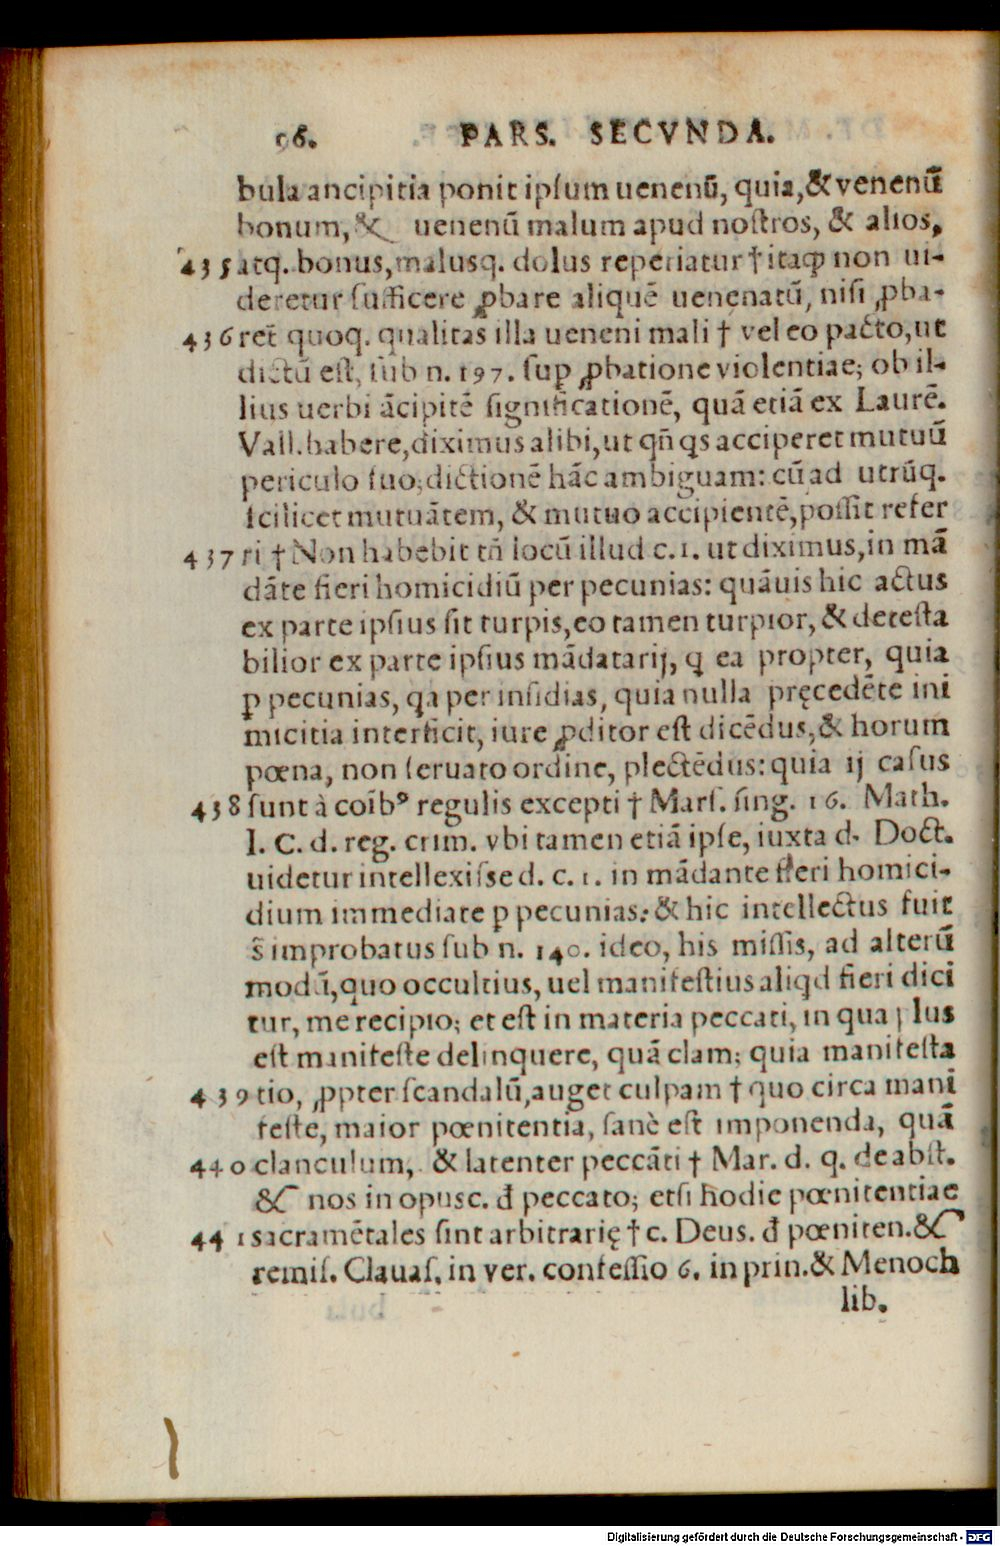 96. PARS. SECVNDA.
bula ancipitia ponit ipſum uenenū, quia, & venenū
bonum, & uenenū malum apud noſtros, & alios,
435 atq. bonus, malusq. dolus reperiatur † itaqꝫ non ui-
deretur ſufficere ꝓbare aliquē uenenatū, niſi ꝓba-
436 ret̄ quoq. qualitas illa ueneni mali † vel eo pacto, ut
dictū eſt, ſub n. 197. ſup ꝓbatione violentiae; ob il-
lius uerbi ācipitē ſignificationē, quā etiā ex Laurē.
Vall. habere, diximus alibi, ut qn̄ qs acciperet mutuū
periculo ſuo; dictionē hāc ambiguam: cū ad utrūq.
ſcilicet mutuātem, & mutuo accipientē, poſſit refer
437 ri † Non habebit tn̄ locū illud c. 1. ut diximus, in mā
dāte fieri homicidiū per pecunias: quāuis hic actus
ex parte ipſius ſit turpis, eo tamen turpior, & deteſta
bilior ex parte ipſius mādatarij, q ea propter, quia
ꝑ pecunias, qa per inſidias, quia nulla pręcedēte ini
micitia interficit, iure ꝓditor eſt dicēdus, & horum
pœna, non ſeruato ordine, plectēdus: quia ij caſus
438 ſunt à coībꝰ regulis excepti † Marſ. ſing. 16. Math.
l. C. d. reg. crim. vbi tamen etiā ipſe, iuxta d. Doct.
uidetur intellexiſſe d. c. 1. in mādante fieri homici-
dium immediate ꝑ pecunias: & hic intellectus fuit
s̄ improbatus ſub n. 140. ideo, his miſſis, ad alterū
mod ī, quo occultius, uel manifeſtius aliqd fieri dici
tur, me recipio; et eſt in materia peccati, in qua plus
eſt manifeſte delinquere, quā clam; quia manifeſta
439 tio, ꝓpter ſcandalū, auget culpam † quo circa mani
feſte, maior pœnitentia, ſanè eſt imponenda, quā
440 clanculum, & latenter peccāti † Mar. d. q. de abſt.
& nos in opusc. đ peccato; etſi hodie pœnitentiae
441 sacramētales ſint arbitrarię † c. Deus. đ pœniten. &
remiſ. Clauaſ. in ver. confeſſio 6. in prin. & Menoch
lib.
Digitalisierung gefördert durch die Deutsche Forschungsgemeinschaft - DFG